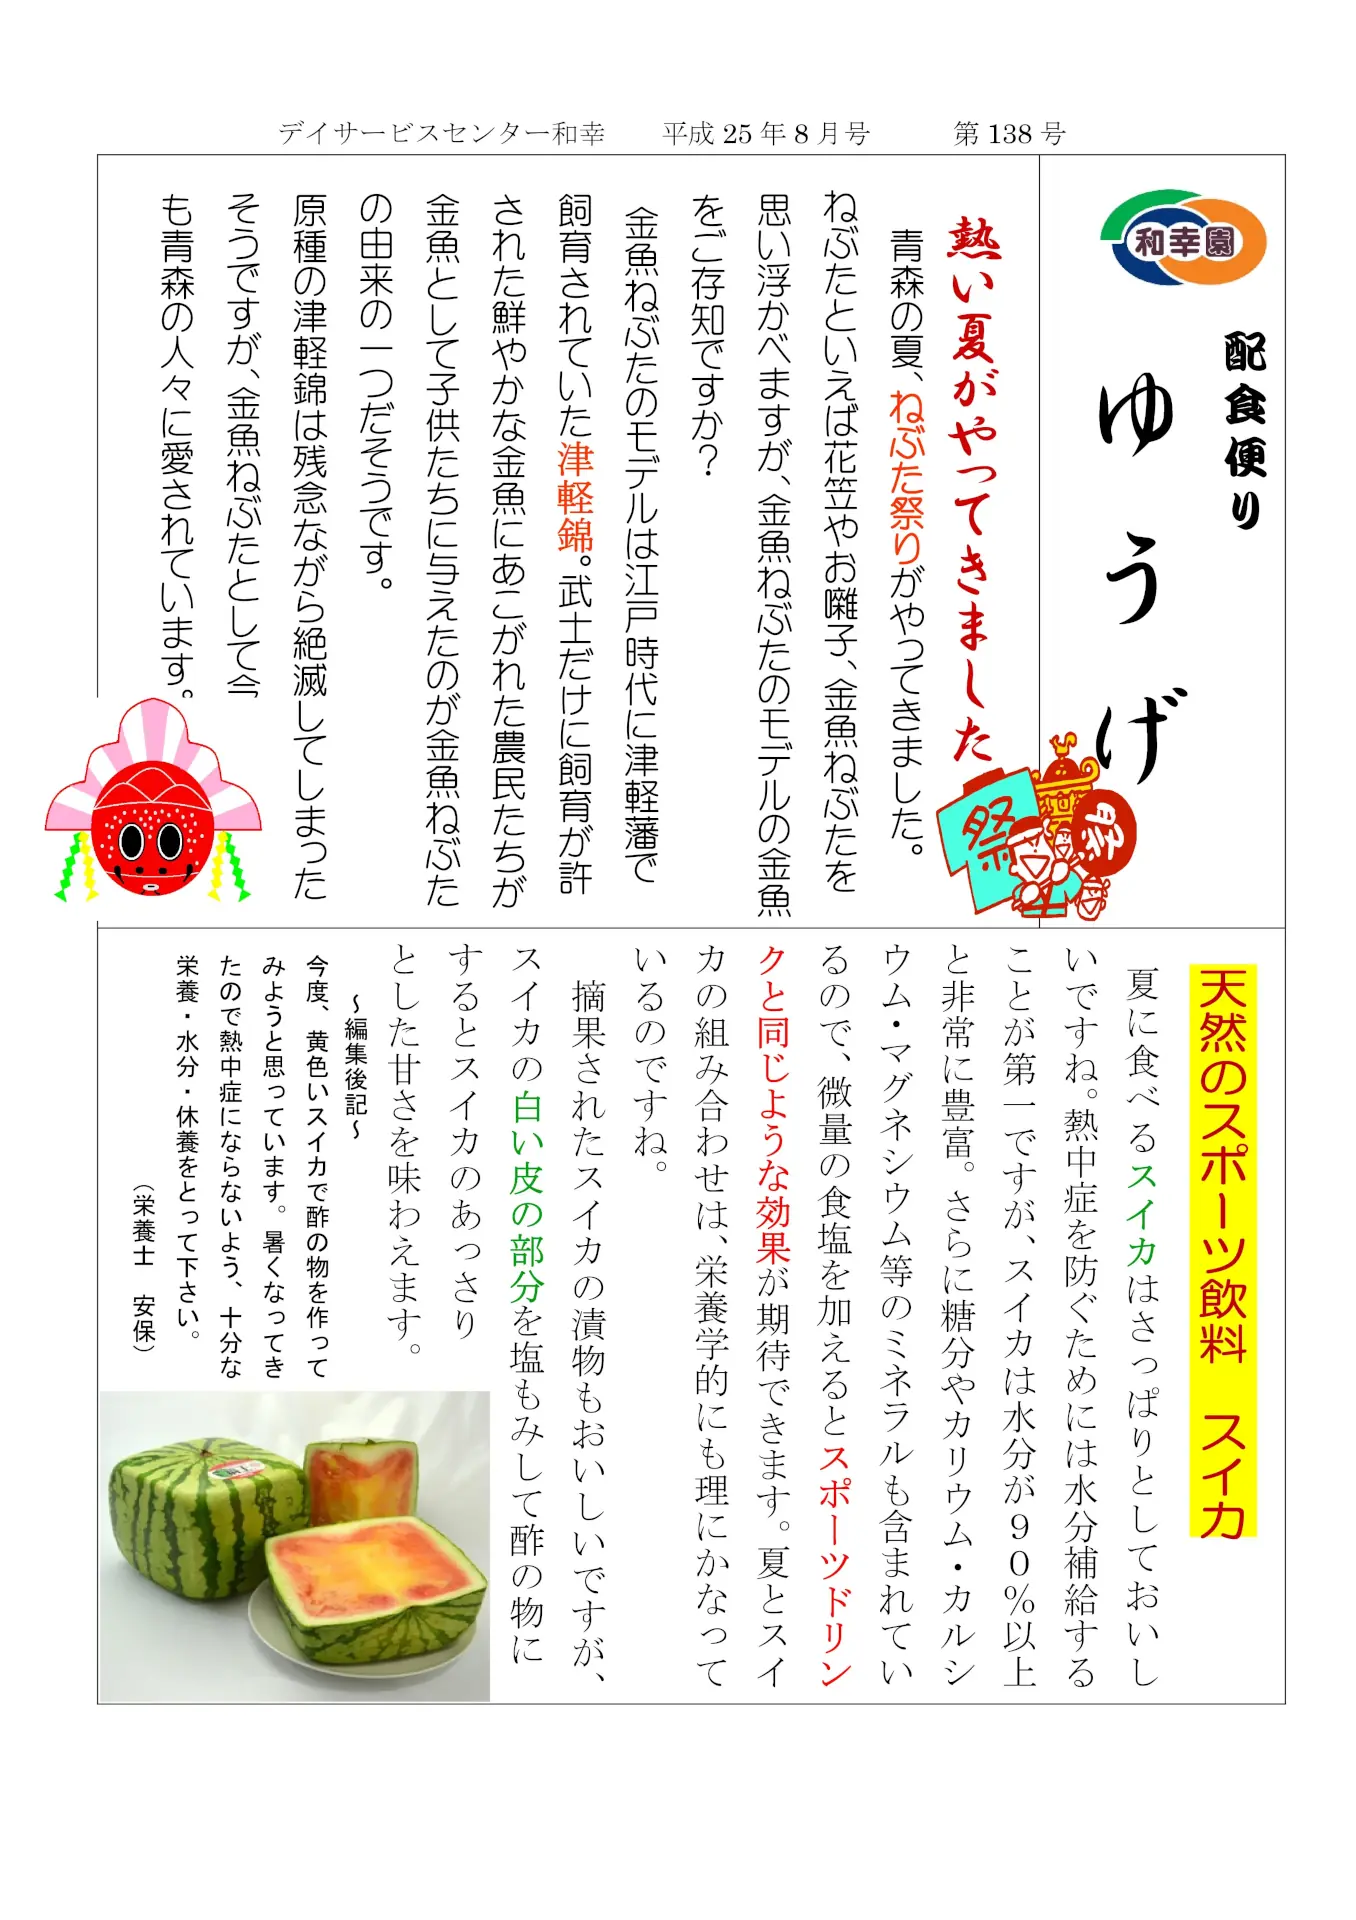 デイサービスセンター和幸　平成25年8月号　第138号
和幸園
配食便り
ゆうげ
熱い夏がやってきました
青森の夏、ねぶた祭りがやってきました。
ねぶたといえば花笠やお囃子、金魚ねぶたを
思い浮かべますが、金魚ねぶたのモデルの金魚
をご存知ですか？
金魚ねぶたのモデルは江戸時代に津軽藩で
飼育されていた津軽錦。武士だけに飼育が許
された鮮やかな金魚にあこがれた農民たちが
金魚として子供たちに与えたのが金魚ねぶた
の由来の一つだそうです。
原種の津軽錦は残念ながら絶滅してしまった
そうですが、金魚ねぶたとして今
も青森の人々に愛されています。
祭
天然のスポーツ飲料　スイカ
夏に食べるスイカはさっぱりとしておいし
いですね。熱中症を防ぐためには水分補給する
ことが第一ですが、スイカは水分が９０％以上
と非常に豊富。さらに糖分やカリウム・カルシ
ウム・マグネシウム等のミネラルも含まれてい
るので、微量の食塩を加えるとスポーツドリン
クと同じような効果が期待できます。夏とスイ
カの組み合わせは、栄養学的にも理にかなって
いるのですね。
摘果されたスイカの漬物もおいしいですが、
スイカの白い皮の部分を塩もみして酢の物に
するとスイカのあっさり
とした甘さを味わえます。
～編集後記～
今度、黄色いスイカで酢の物を作って
みようと思っています。暑くなってき
たので熱中症にならないよう、十分な
栄養・水分・休養をとって下さい。
（栄養士　安保）